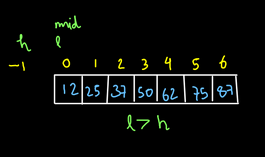 mid
h l
-1 0 1 2 3 4 5 6
12 25 37 50 62 75 87
l > h